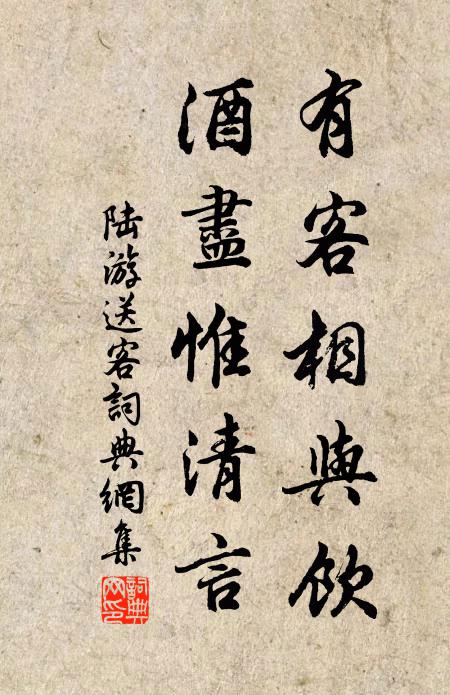 有客相與飲
酒盡惟清言
陆游送客詞典網集
詞典網印